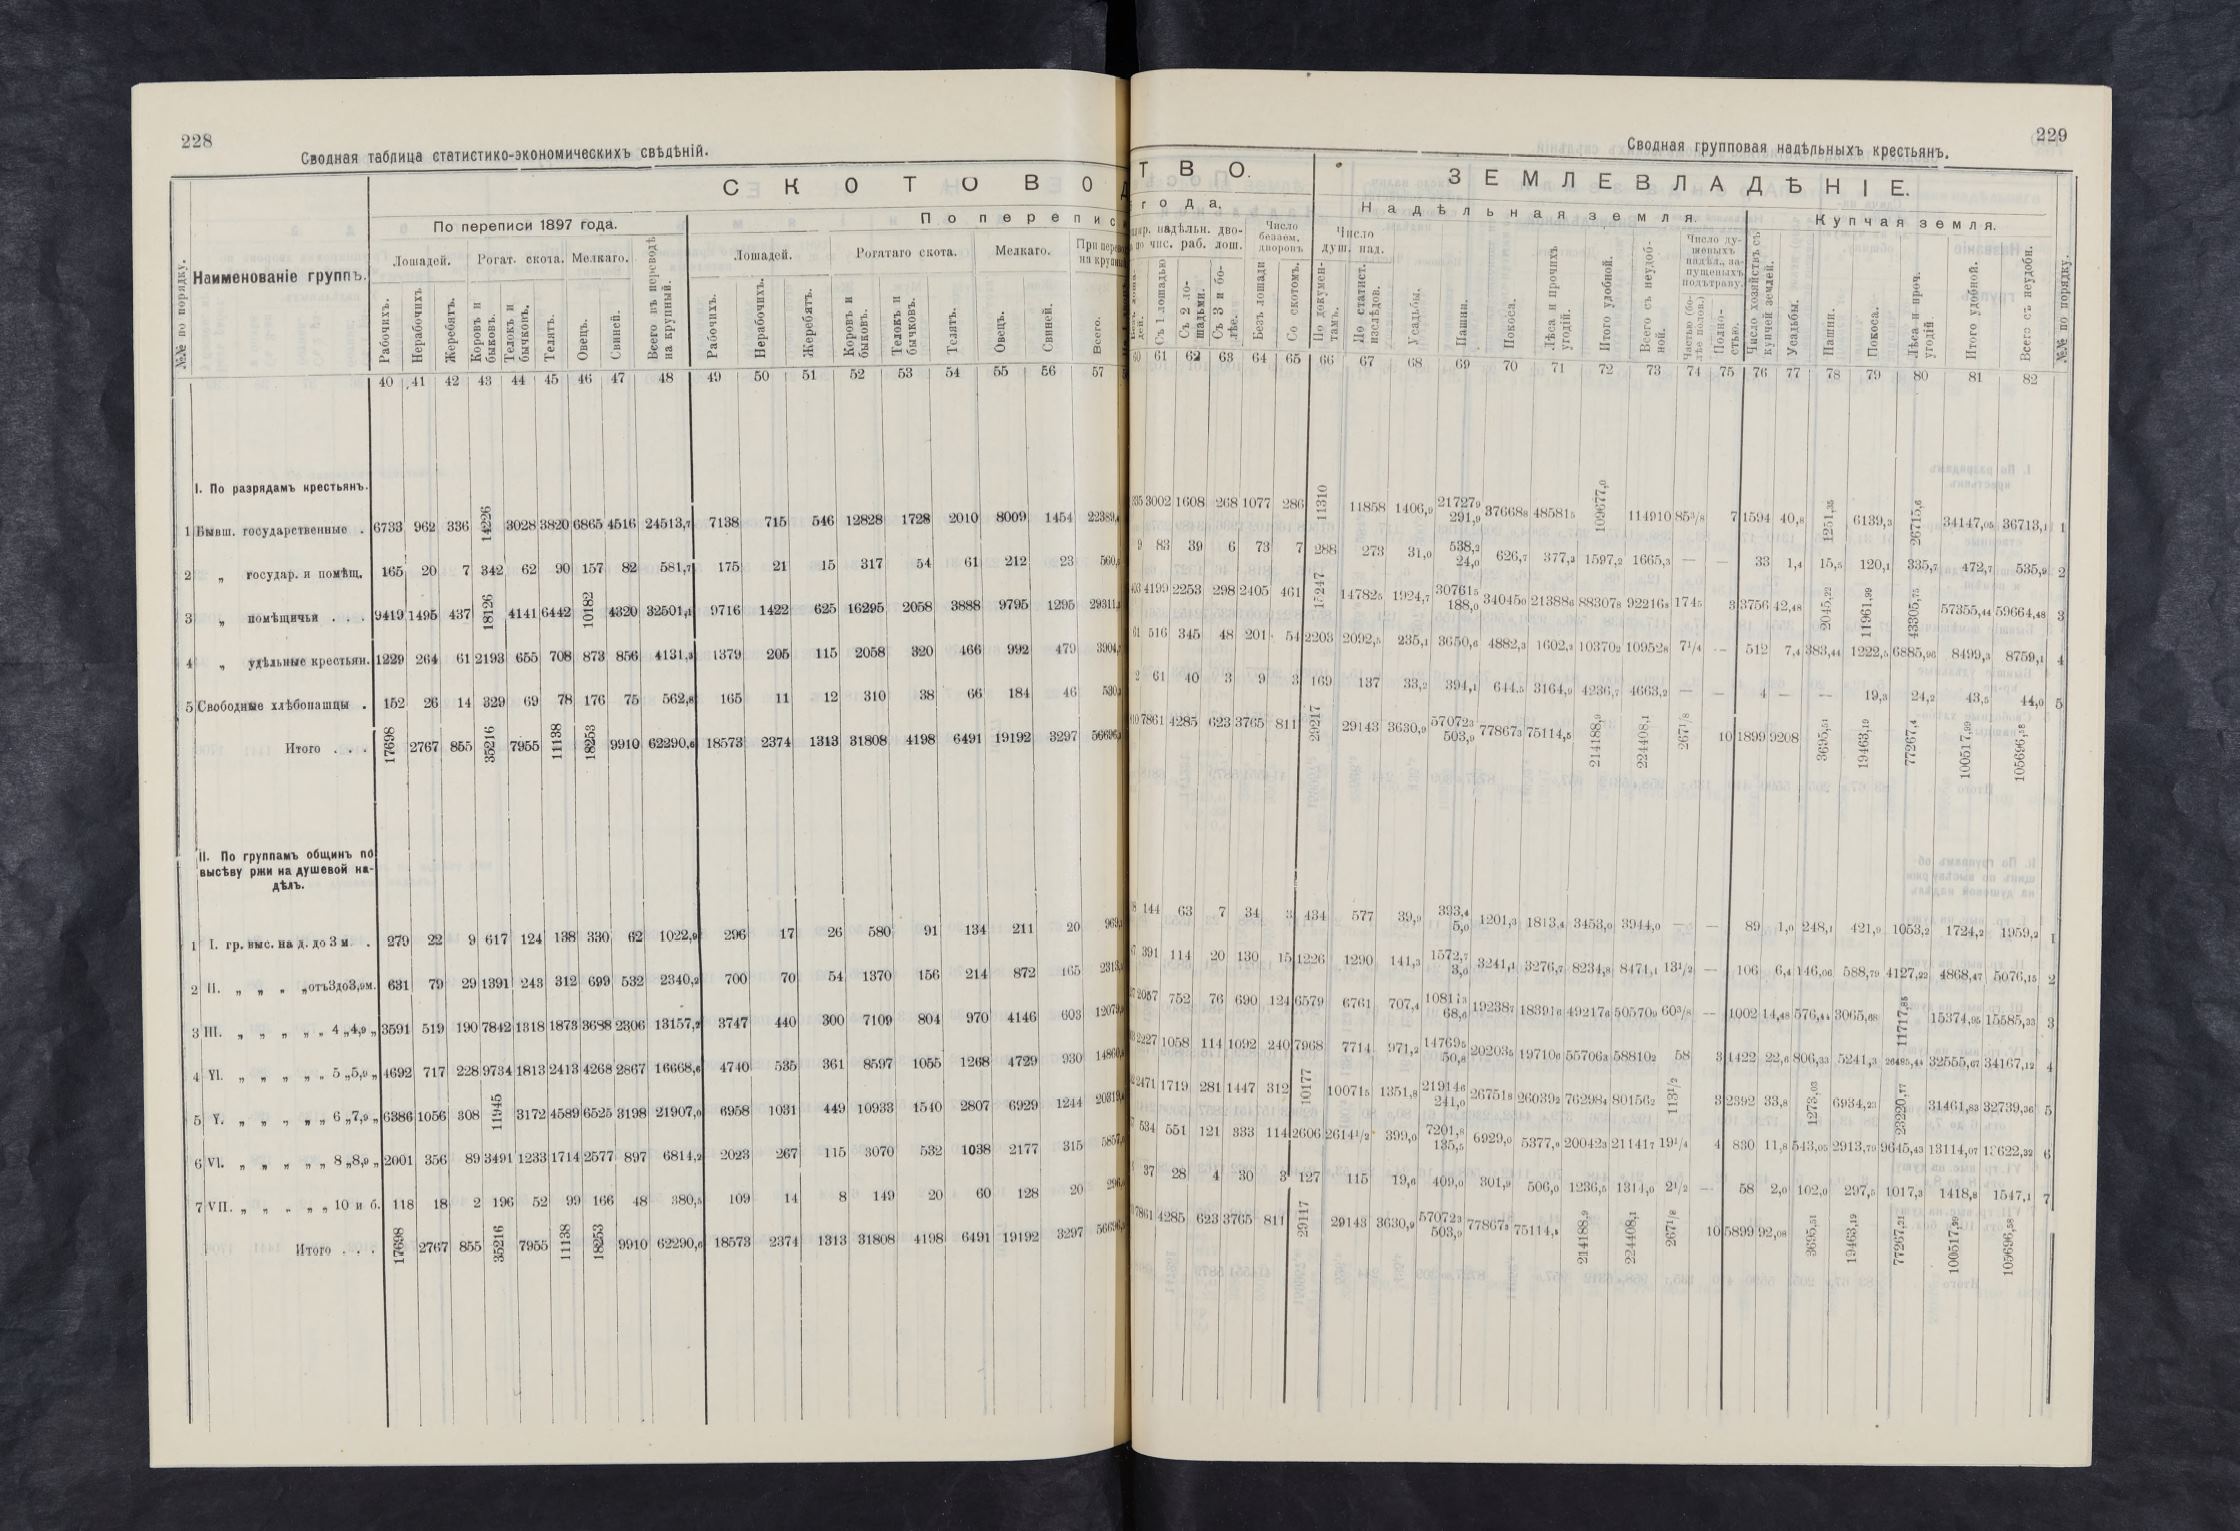 228
Сводная таблица статистико-экономическихъ свѣдѣній.
№№ по порядку.
Наименованіе группъ.
С К О Т О В О Д
По переписи 1897 года.
По переписи
Лошадей. Рогат. скота. Мелкаго.
Всего въ переводѣ на крупный.
Лошадей. Рогатаго скота. Мелкаго.
Рабочихъ. Нерабочихъ Жеребятъ. Коровъ и быковъ. Телокъ и бычковъ. Телятъ. Овецъ. Свиней.
Рабочихъ. Нерабочихъ. Жеребятъ. Коровъ и быковъ. Телокъ и бычковъ. Телятъ. Овецъ. Свиней. Всего.
40 41 42 43 44 45 46 47 48 49 50 51 52 53 54 55 56 57
I. По разрядамъ крестьянъ.
1 Бывш. государственные . 6733 962 336 14226 3028 3820 6865 4516 24513,7 7138 715 546 12828 1728 2010 8009 1454
2 „ государ. и помѣщ. 165 20 7 342 62 90 157 82 581,7 175 21 15 317 54 61 212 23
3 „ помѣщичьи . . . 9419 1495 437 18126 4141 6442 10182 4320 32501,1 9716 1422 625 16295 2058 3888 9795 1295
4 „ удѣльные крестьян. 1229 264 61 2193 655 708 873 856 4131,3 1379 205 115 2058 320 466 992 479
5 Свободные хлѣбопашцы . 152 26 14 329 69 78 176 75 562,8 165 11 12 310 38 66 184 46
Итого . . . 17698 2767 855 35216 7955 11138 18253 9910 62290,6 18573 2374 1313 31808 4198 6491 19192 3297
II. По группамъ общинъ по
высѣву ржи на душевой на-
дѣлъ.
1 I. гр. выс. на д. до 3 м . 279 22 9 617 124 138 330 62 1022,9 296 17 26 580 91 134 211 20
2 II. „ „ „ „ отъ 3 до 3,9 м. 631 79 29 1391 243 312 699 532 2340,2 700 70 54 1370 156 214 872 165
3 III. „ „ „ „ „ 4 „ 4,9 „ 3591 519 190 7842 1318 1873 3688 2306 13157,2 3747 440 300 7109 804 970 4146 603
4 YI. „ „ „ „ „ 5 „ 5,9 „ 4692 717 228 9734 1813 2413 4268 2867 16668,6 4740 535 361 8597 1055 1268 4729 930
5 Y. „ „ „ „ „ 6 „ 7,9 „ 6386 1056 308 11945 3172 4589 6525 3198 21907,0 6958 1031 449 10933 1540 2807 6929 1244
6 VI. „ „ „ „ „ 8 „ 8,9 „ 2001 356 89 3491 1233 1714 2577 897 6814,2 2023 267 115 3070 532 1038 2177 315
7 VII. „ „ „ „ „ 10 и б. 118 18 2 196 52 99 166 48 380,5 109 14 8 149 20 60 128 20
Итого . . . 17698 2767 855 35216 7955 11138 18253 9910 62290,6 18573 2374 1313 31808 4198 6491 19192 3297
229
Сводная групповая надѣльныхъ крестьянъ.
Т В О.
З Е М Л Е В Л А Д Ѣ Н І Е.
года.
Надѣльная земля.
Купчая земля.
надѣльн. дво-
по чис. раб. лош.
Число беззем. дворовъ
Число душ. над.
Число ду-
шевыхъ
надѣл., за-
пущеныхъ
подъ траву.
Съ 1 лошадью Съ 2 ло-шадьми. Съ 3 и бо-лѣе. Безъ лошади Со скотомъ. По докумен-тамъ. По статист. изслѣдов. Усадьбы. Пашни. Покоса. Лѣса и прочихъ угодій. Итого удобной. Всего съ неудоб-ной. Частью (бо-лѣе полов.) Полно-стью.
Число хозяйствъ съ купчей землей. Усадьбы. Пашни. Покоса. Лѣса и проч. угодій Итого удобной. Всего съ неудобн. №№ по порядку.
60 61 62 63 64 65 66 67 68 69 70 71 72 73 74 75 76 77 78 79 80 81 82
3002 1608 268 1077 286 11310 11858 1406,9 217279 291,9 376688 485815 109677,0 114910 85 3/8 7 1594 40,8 1251,35 6139,3 26715,6 34147,05 36713,1 1
9 83 39 6 73 7 288 273 31,0 538,2 24,0 626,7 377,3 1597,2 1665,3 — — 33 1,4 15,5 120,1 335,7 472,7 535,9 2
4199 2253 298 2405 461 15247 147825 1924,7 307615 188,0 340450 213886 883078 922163 1745 3 3756 42,48 2045,22 11961,99 43305,75 57355,44 59664,48 3
61 516 345 48 201 54 2203 2092,5 235,1 3650,6 4882,3 1602,3 103702 109528 7 1/4 — 512 7,4 383,44 1222,5 6885,96 8499,3 8759,1 4
2 61 40 3 9 3 169 137 33,2 394,1 644,5 3164,9 4236,7 4663,2 — — 4 — — 19,3 24,2 43,5 44,0 5
7861 4285 623 3765 811 29217 29143 3630,9 570723 503,9 778673 75114,5 214188,9 224408,1 267 1/8 10 1899 9208 3695,51 19463,19 77267,4 100517,99 105696,58
144 63 7 34 3 434 577 39,9 393,4 5,0 1201,3 1813,4 3453,0 3944,0 — — 89 1,0 248,1 421,9 1053,2 1724,2 1959,2 1
391 114 20 130 15 1226 1290 141,3 1572,7 3,0 3241,1 3276,7 8234,8 8474,1 13 1/2 — 106 6,4 146,06 588,79 4127,22 4868,47 5076,15 2
2057 752 76 690 124 6579 6761 707,4 108113 68,6 192387 183916 492176 505709 60 3/8 — 1002 14,48 576,44 3065,68 11717,85 15374,95 15585,33 3
2227 1058 114 1092 240 7968 7714 971,2 147695 50,8 202035 197106 557063 588102 58 3 1422 22,6 806,33 5241,3 26485,44 32555,67 34167,12 4
2471 1719 281 1447 312 10177 100715 1351,8 219146 241,0 267518 260392 762984 801562 113 1/2 3 2392 33,8 1273,03 6934,23 23220,17 31461,83 32739,36 5
534 551 121 333 114 2606 2614 1/2 399,0 7201,8 135,5 6929,0 5377,9 200423 211417 19 1/4 4 830 11,8 543,05 2913,79 9645,43 13114,07 13622,32 6
37 28 4 30 3 127 115 19,6 409,0 301,9 506,0 1236,5 1314,0 2 1/2 — 58 2,0 102,0 297,5 1017,3 1418,8 1547,1 7
7861 4285 623 3765 811 29117 29143 3630,9 570723 503,9 778673 75114,5 214188,9 224408,1 267 1/8 10 5899 92,08 3695,51 19463,19 77267,21 100517,99 105696,58